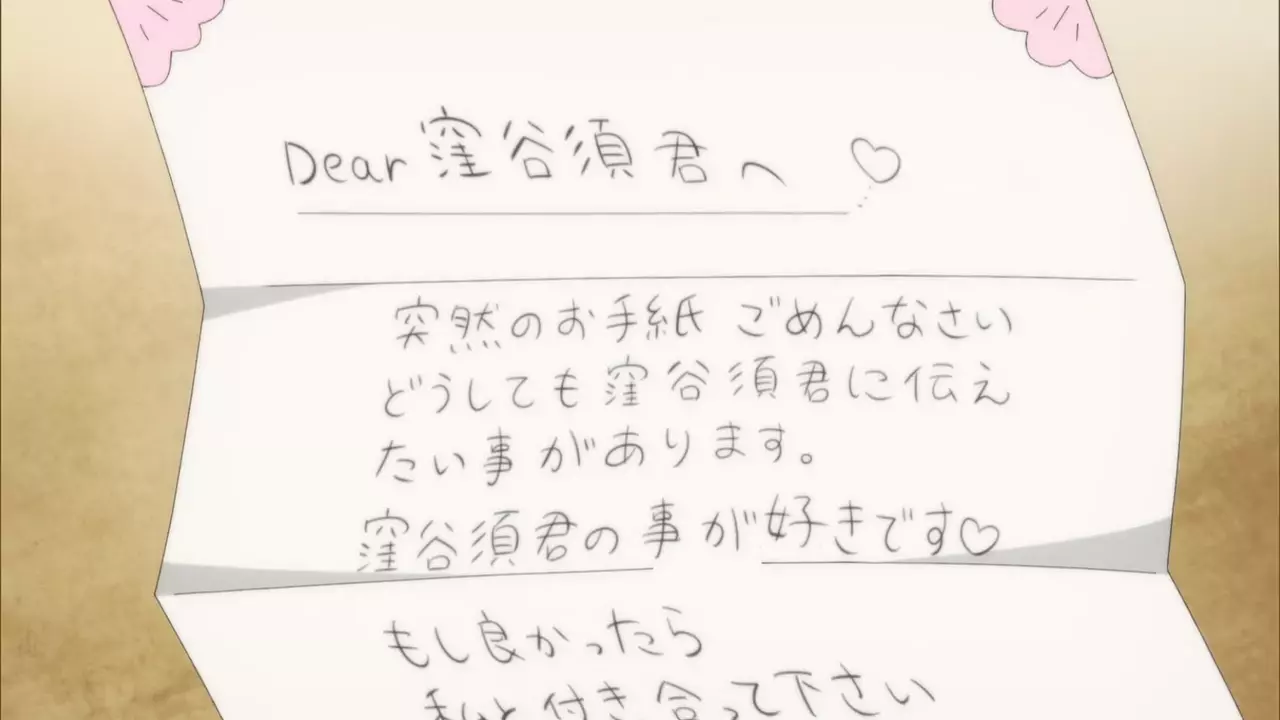 Dear 窪谷須君へ ♡
突然のお手紙 ごめんなさい
どうしても窪谷須君に伝え
たい事があります。
窪谷須君の事が好きです♡
もし良かったら
私と付き合って下さい